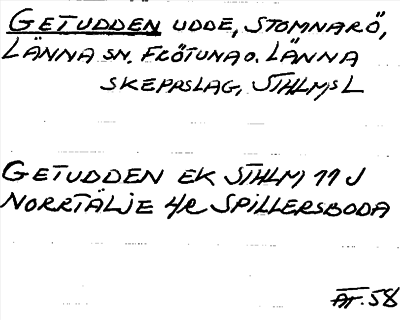 GETUDDEN UDDE, STOMNARÖ,
LÄNNA SN. FRÖTUNA O. LÄNNA
SKEPPSLAG, STHLMS L
GETUDDEN EK STHLM 11 J
NORRTÄLJE 4R SPILLERSBODA
ÅT. 58